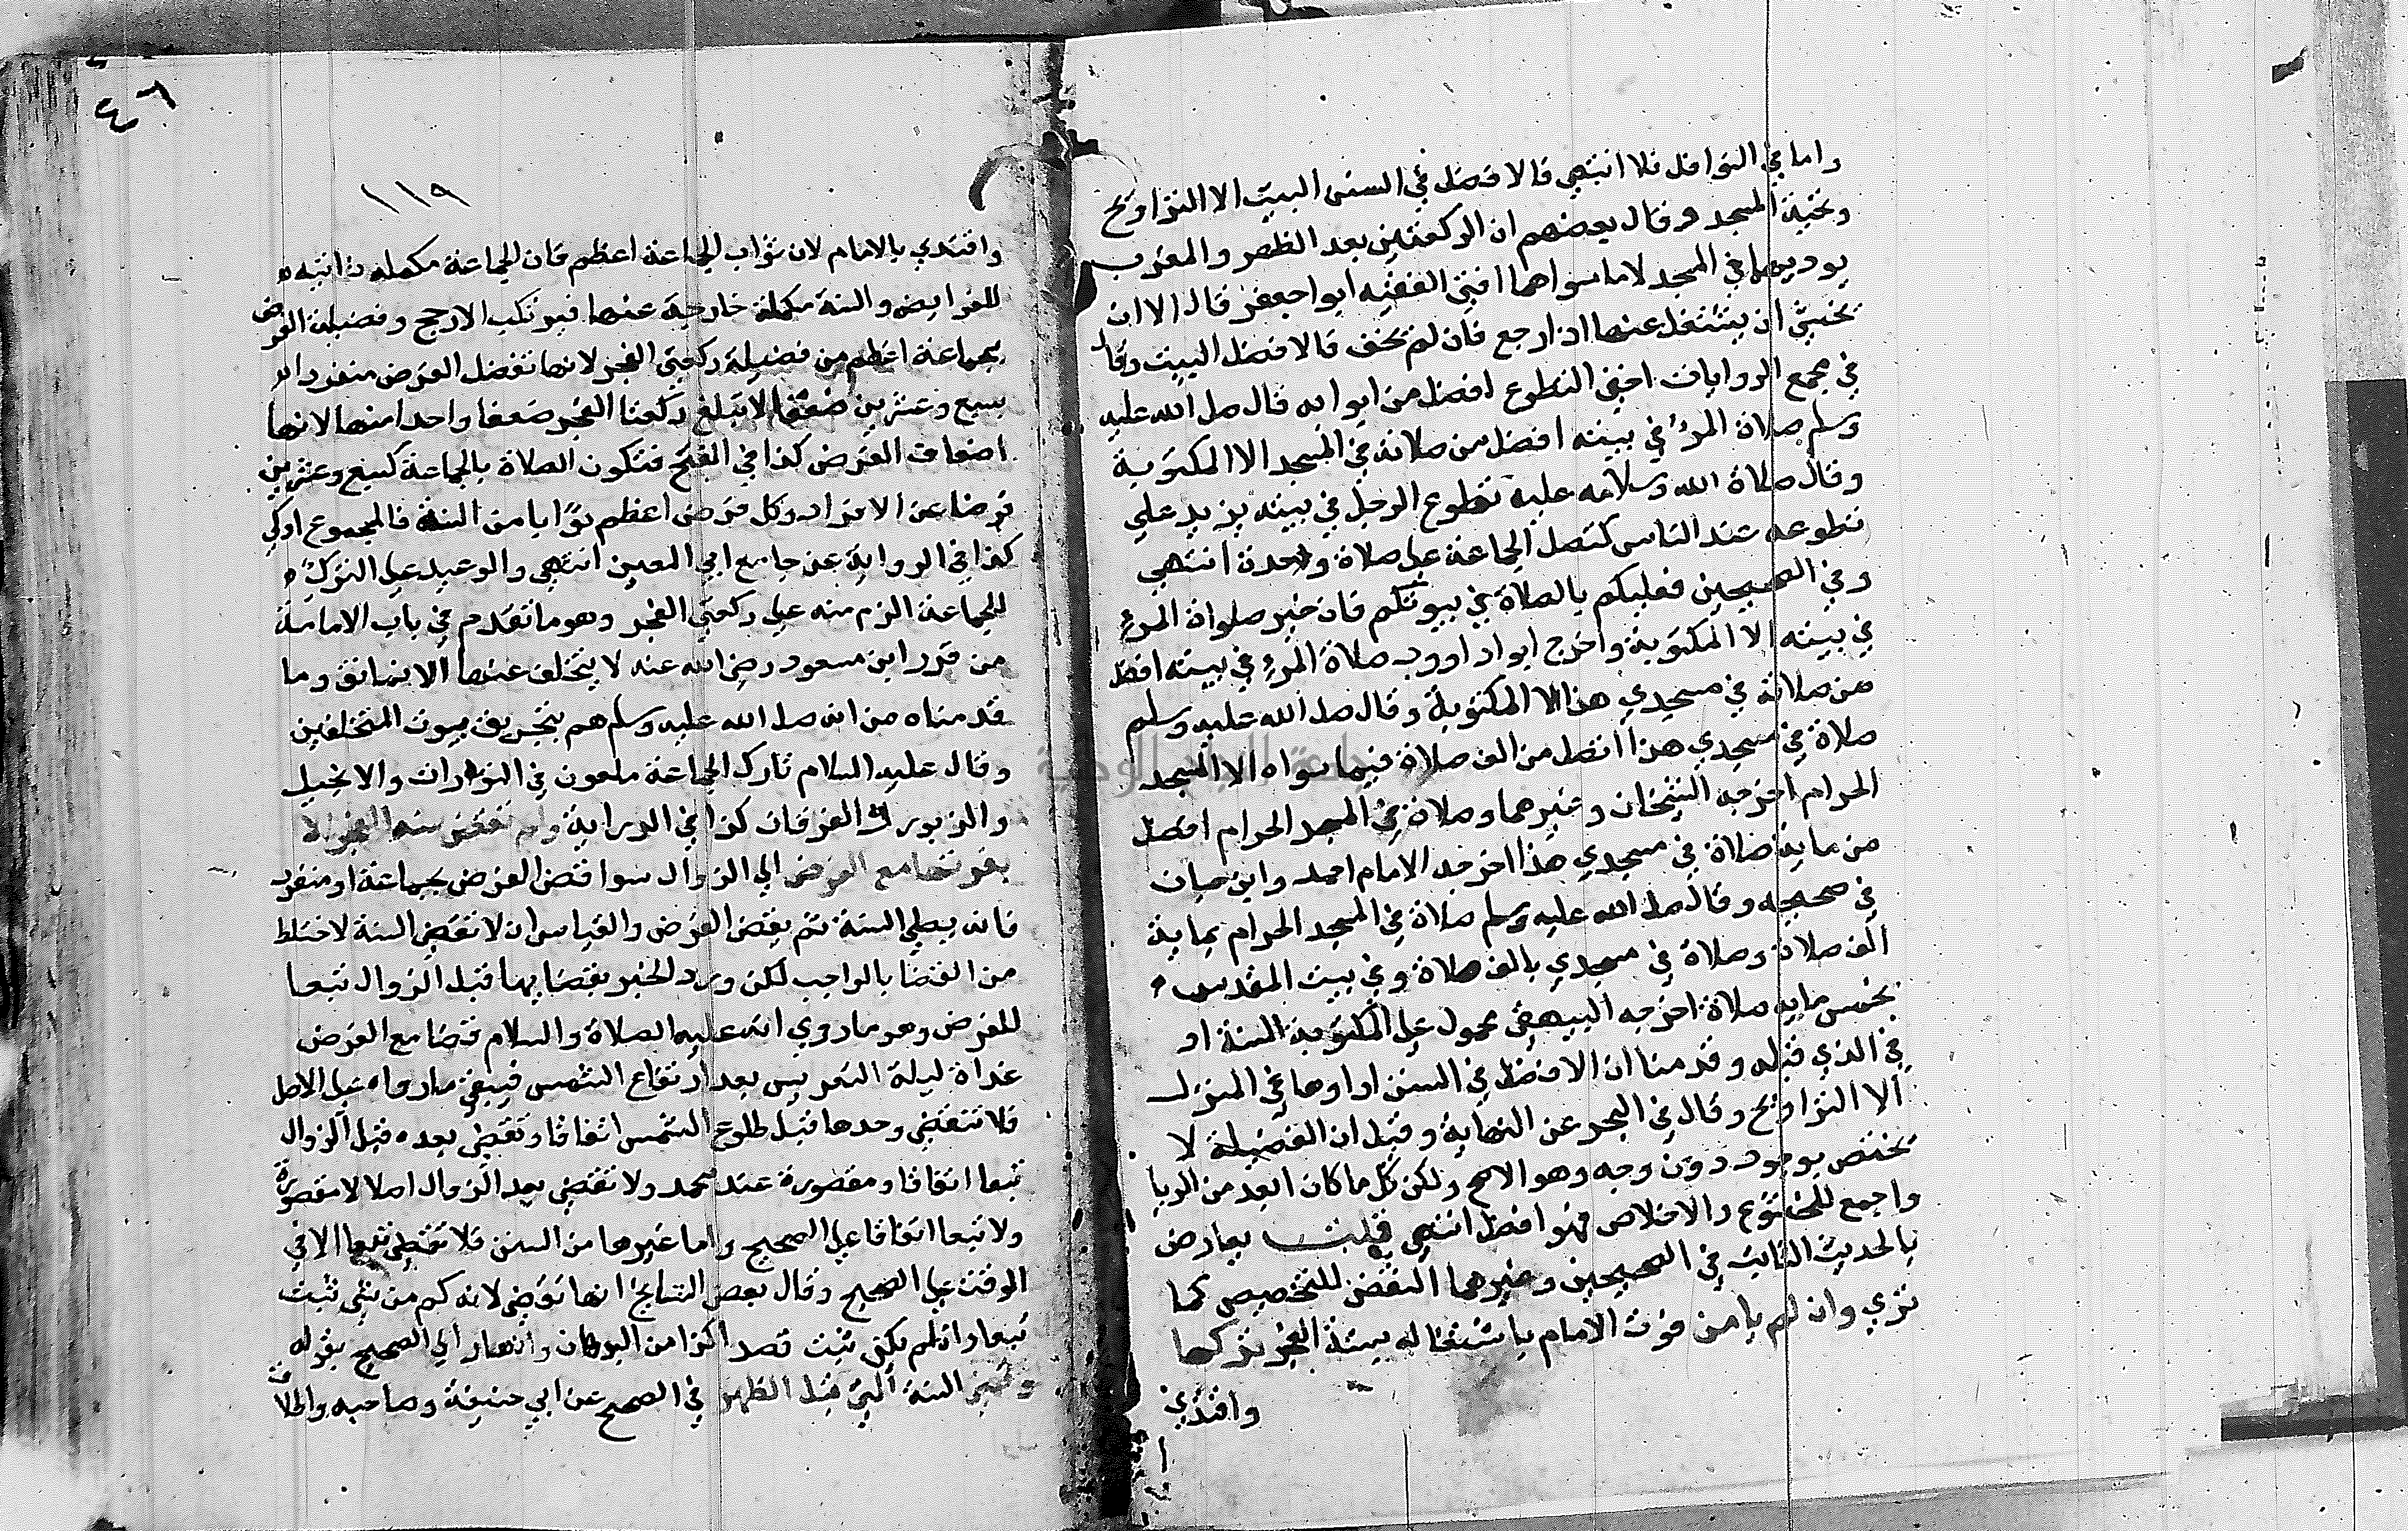 واما في النوافل فلا انتهي فالافضل في السنن البيت الا التراويح
وتحية المسجد وقال بعضهم ان الركعتين بعد الظهر والمغرب
يوديهما في المسجد لا ما سواهما افتي الفقيه ابو جعفر قال الا ان
يخشي ان يشتغل عنها اذا رجع فان لم يخف فالافضل البيت وقال
في مجمع الروايات اخفي التطوع افضل من ابوابه قال صلى الله عليه
وسلم صلاة المرء في بيته افضل من صلاته في المسجد الا المكتوبة
وقال صلاة الله وسلامه عليه تطوع الرجل في بيته يزيد علي
تطوعه عند الناس كفضل الجماعة علي صلاة واحدة انتهي
وفي الصحيحين فعليكم بالصلاة في بيوتكم فان خير صلواة المرء
في بيته الا المكتوبة واخرج ابو اداوود صلاة المرء في بيته افضل
من صلاته في مسجدي هذا الا المكتوبة وقال صلى الله عليه وسلم
صلاة في مسجدي هذا افضل من الف صلاة فيما سواه الا المسجد
الحرام اخرجه الشيخان وغيرهما وصلاة في المسجد الحرام افضل
من ماية صلاة في مسجدي هذا اخرجه الامام احمد وابن حبان
في صحيحه وقال صلى الله عليه وسلم صلاة في المسجد الحرام بماية
الف صلاة وصلاة في مسجدي بالف صلاة وفي بيت المقدس
بخمس ماية صلاة اخرجه البيهقي محمول علي المكتوبة السنة او
في الذي قبله وقدمنا ان الافضل في السنن اداوها في المنزل
الا التراويح وقال في البحر عن النهاية وقيل ان الفضيلة لا
تختص بوجود دون وجه وهو الاصح ولكن كل ما كان ابعد من الريا
واجمع للخشوع والاخلاص فهو افضل انتهي قلت يعارض
بالحديث الثابت في الصحيحين وغيرهما النقض للتخصيص كما
تري وان لم يامن فوت الامام باشتغاله بسنة الفجر تركها
واقتدي
٤٦
١١٩
واقتدي بالامام لان ثواب الجماعة اعظم فان الجماعة مكملة ذاتيه
للفرايض والسنة مكملة خارجية عنها فيرتكب الارجح وفضيلة الفرض
بجماعة اعظم من فضيلة ركعتي الفجر لانها تفضل الفرض منفردا
بسبع وعشرين ضعفا لا تبلغ ركعتا الفجر ضعفا واحدا منها لانها
اضعاف الفرض كذا في الفتح فتكون الصلاة بالجماعة كسبع وعشرين
فرضا عن الانفراد وكل فرض اعظم ثوابا من السنة فالمجموع اولي
كذا في الرواية عن جامع ابي المعين انتهي والوعيد علي الترك
للجماعة الزم منه علي ركعتي الفجر وهو ما تقدم في باب الامامة
من قول ابن مسعود رضي الله عنه لا يتخلف عنها الا منافق وما
قدمناه من انه صلى الله عليه وسلم هم بتحريق بيوت المتخلفين
وقال عليه السلام تارك الجماعة ملعون في التوارات والانجيل
والزبور والفرقان كذا في الدراية ولم تقض سنة الفجر الا
بفوتها مع الفرض الي الزوال سوا قضي الفرض بجماعة او منفرد
فانه يصلي السنة ثم يقضي الفرض والقياس ان لا تقضي السنة لاختصاص
من القضا بالواجب لكن ورد الخبر بقضايها قبل الزوال تبعا
للفرض وهو ما روي انه عليه الصلاة والسلام قضا مع الفرض
غداة ليلة التعريس بعد ارتفاع الشمس فيبقي ما رواه علي الاصل
فلا تقضي وحدها قبل طلوع الشمس اتفاقا وتقضي بعده قبل الزوال
تبعا اتفاقا ومقصورة عند محمد ولا تقضي بعد الزوال اصلا لا مقصورة
ولا تبعا اتفاقا علي الصحيح واما غيرها من السنن فلا تقضي تبعا الا في
الوقت علي الصحيح وقال بعض المشايخ انها تقضي لانه كم من شي ثبت
تبعا وان لم يكن ثبت قصدا كذا من البرهان واشار الي الصحيح بقوله
وقضي السنة التي قبل الظهر في الصحيح عن ابي حنيفة وصاحبه واطلاق